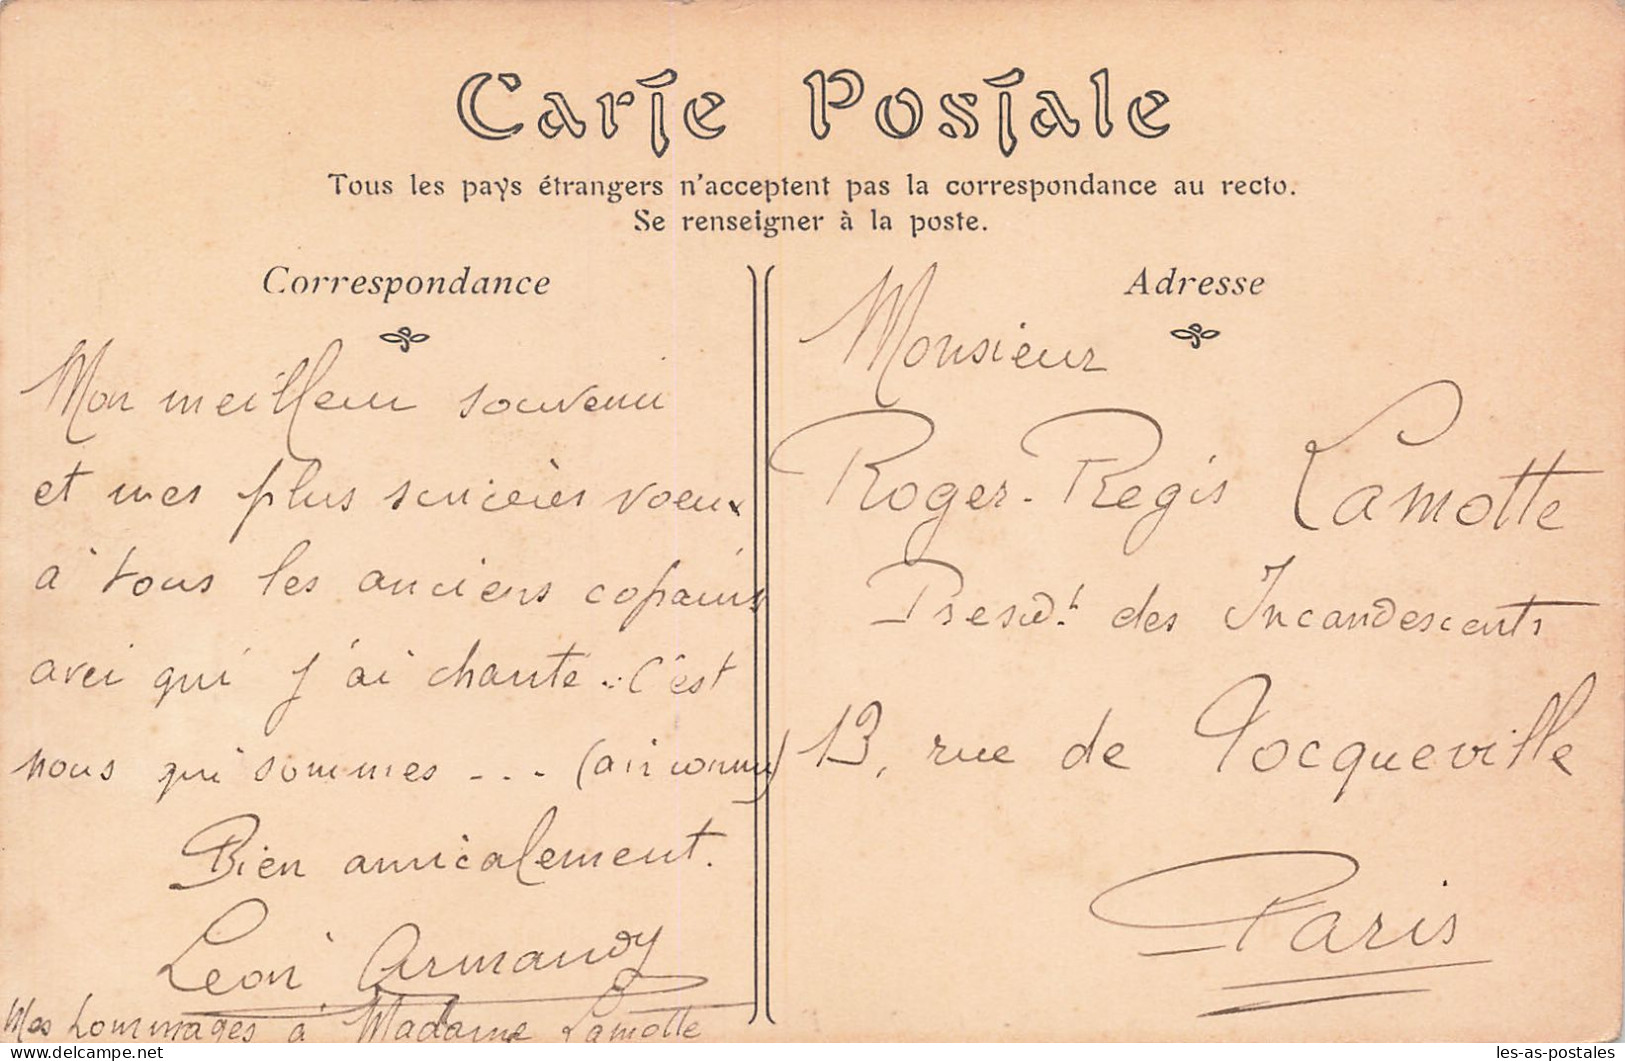 Carte Postale
Tous les pays étrangers n'acceptent pas la correspondance au recto.
Se renseigner à la poste.
Correspondance
Mon meilleur souvenir
et mes plus sincères voeux
à tous les anciens copains
avec qui j'ai chanté.. C'est
nous qui sommes - - - (air connu)
Bien amicalement.
Léon Armandy
Mes hommages à Madame Lamotte
Adresse
Monsieur
Roger-Régis Lamotte
Présid.t des Incandescents
13, rue de Tocqueville
Paris
les-as-postales